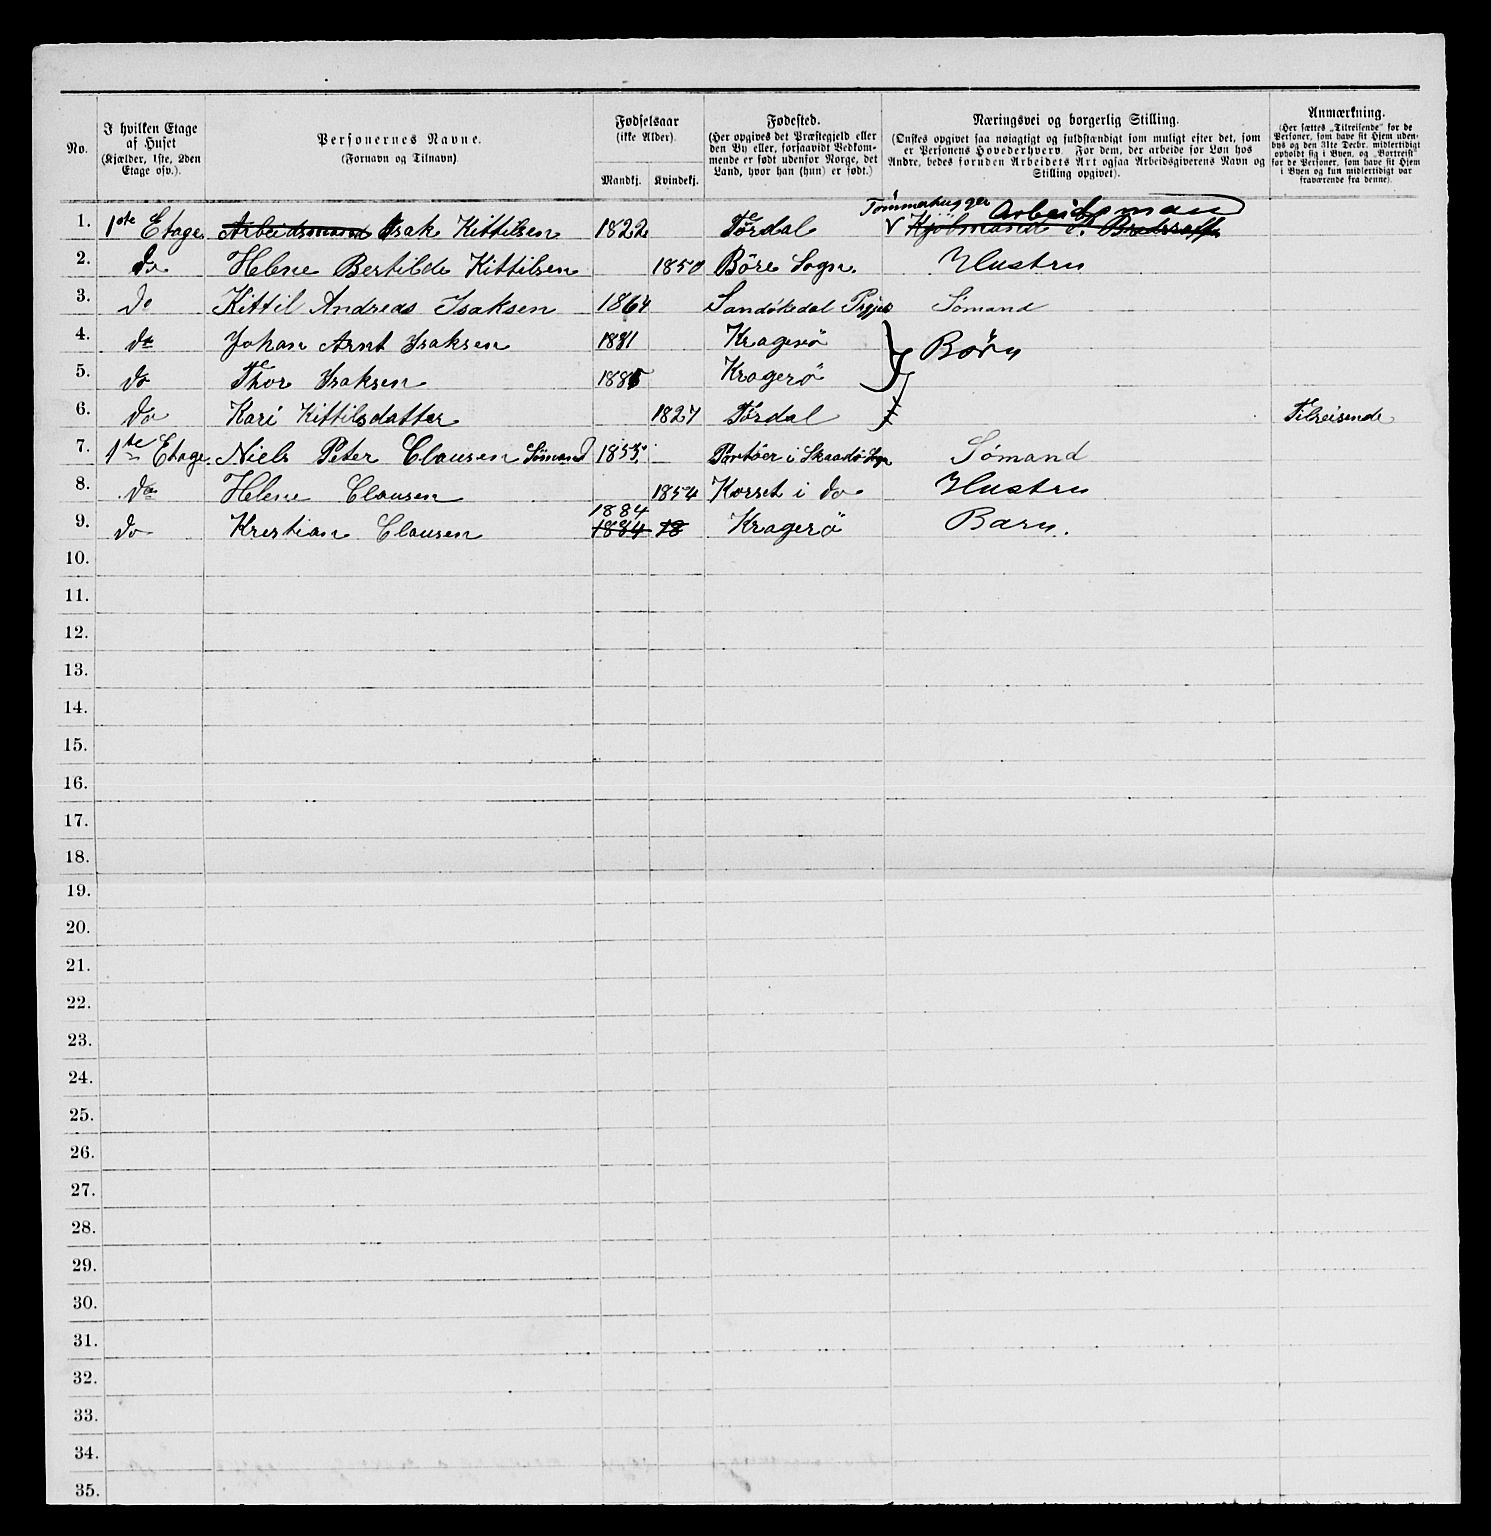 No.
I hvilken Etage af Huset (Kjælder, 1ste, 2den Etage osv.).
Personernes Navne. (Fornavn og Tilnavn).
Fødselsaar (ikke Alder).
Mandkj. Kvindekj.
Fødested. (Her opgives det Præstegjeld eller den By eller, forsaavidt Vedkommende er født udenfor Norge, det Land, hvor han (hun) er født.)
Næringsvei og borgerlig Stilling. (Ønskes opgivet saa nøiagtigt og fuldstændigt som muligt efter det, som er Personens Hovederhverv. For dem, der arbeide for Løn hos Andre, bedes foruden Arbeidets Art ogsaa Arbeidsgiverens Navn og Stilling opgivet).
Anmærkning. (Her sættes „Tilreisende" for de Personer, som have sit Hjem udenbys og den 31te Decbr. midlertidigt opholdt sig i Byen, og „Bortreist" for de Personer, som have sit Hjem i Byen og kun midlertidigt var fraværende fra denne).
Tømmerhugger Arbeidsmand
1. 1ste Etage Arbeidsmand Isak Kittilsen 1822 Tørdal Kjølmand
2. do Helene Bertilde Kittilsen 1850 Böre Sogn Hustru
3. do Kittil Andreas Isaksen 1864 Sandökedal Prgjes Sømand
4. do Johan Arnt Isaksen 1881 Kragerö Børn
5. do Thor Isaksen 1885 Kragerö
6. do Kari Kittilsdatter 1827 Tørdal Tilreisende
7. 1ste Etage Niels Peter Clausen Sömand 1855 i Skaadö Sogn Sömand
8. do Helene Clausen 1854 Korset i do Hustru
1884
9. do Krestian Clausen 1884 18 Kragerö Barn.
10.
11.
12.
13.
14.
15.
16.
17.
18.
19.
20.
21.
22.
23.
24.
25.
26.
27.
28.
29.
30.
31.
32.
33.
34.
35.